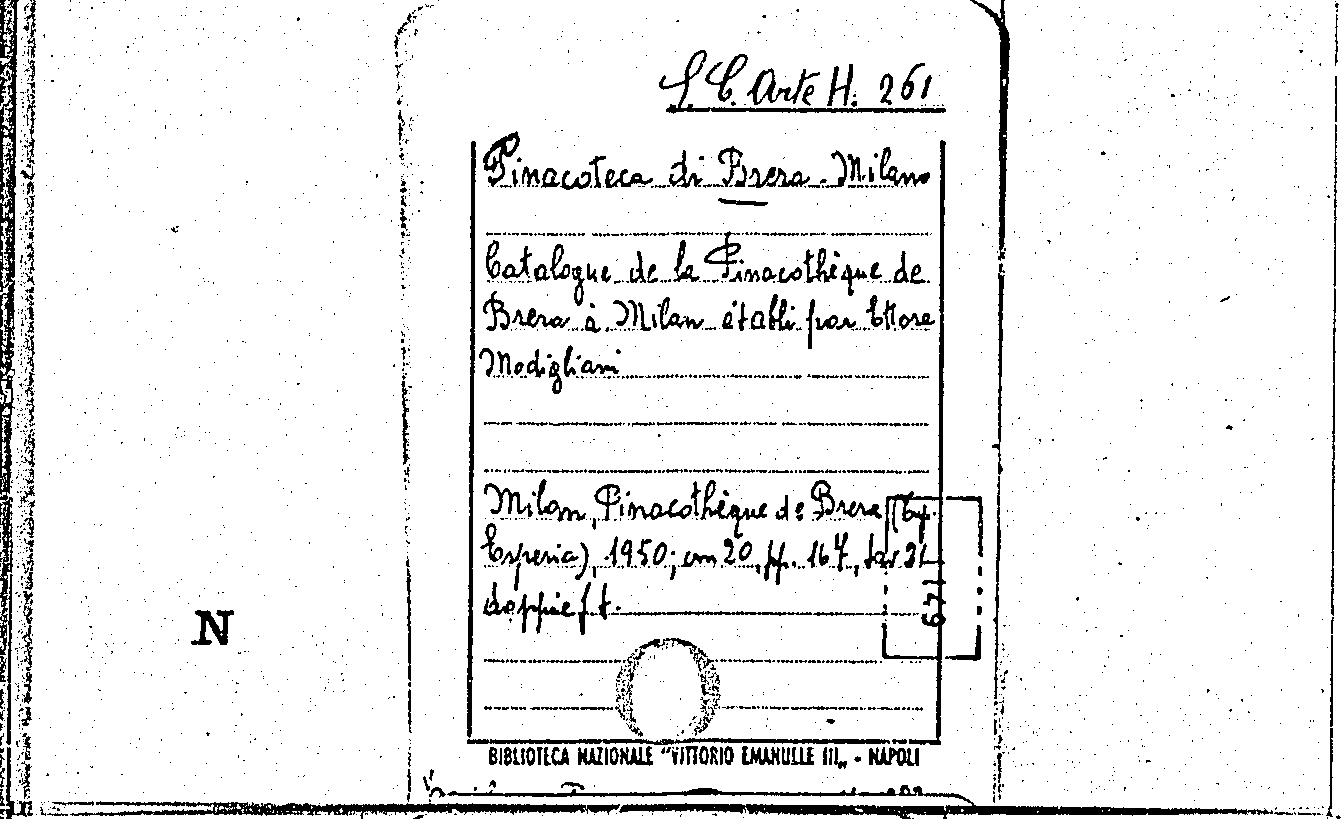 S. C. Arte H. 261
Pinacoteca di Brera. Milano
Catalogue de la Pinacothèque de
Brera à Milan établi par Ettore
Modigliani
Milan, Pinacothèque de Brera (Ty.
Esperia), 1950; cm 20, pp. 167, tav 31
doppie f t.
179
N
BIBLIOTECA NAZIONALE "VITTORIO EMANUELE III„ - NAPOLI